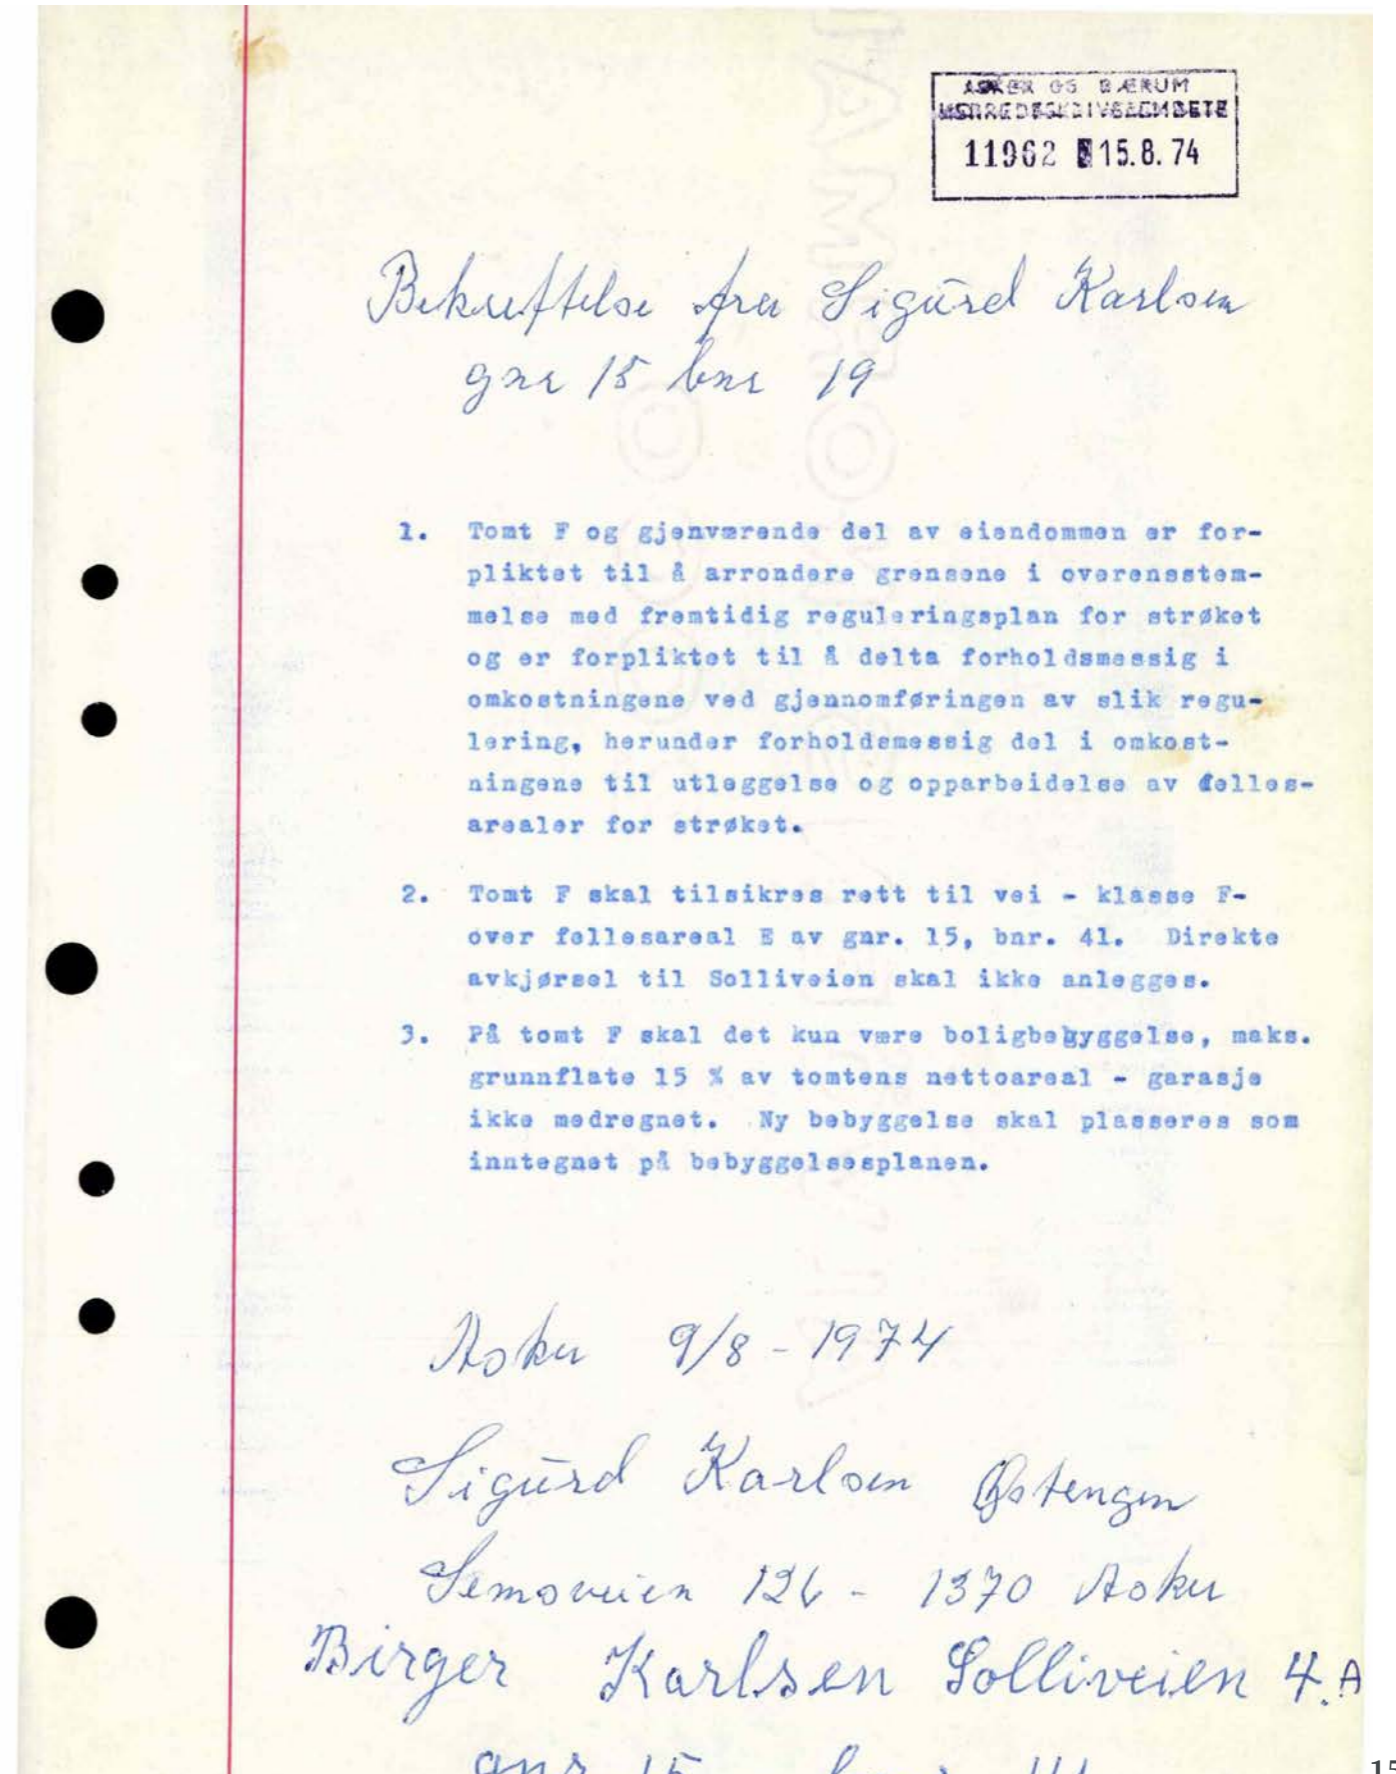 ASKER OG BÆRUM
HERREDSSKRIVEREMBETE
11962 15.8.74
Bekreftelse fra Sigurd Karlsen
gnr 15 bnr 19
1. Tomt F og gjenværende del av eiendommen er for-
pliktet til å arrondere grensene i overensstem-
melse med fremtidig reguleringsplan for strøket
og er forpliktet til å delta forholdsmessig i
omkostningene ved gjennomføringen av slik regu-
lering, herunder forholdsmessig del i omkost-
ningene til utleggelse og opparbeidelse av felles-
arealer for strøket.
2. Tomt F skal tilsikres rett til vei - klasse F-
over fellesareal E av gnr. 15, bnr. 41. Direkte
avkjørsel til Solliveien skal ikke anlegges.
3. På tomt F skal det kun være boligbebyggelse, maks.
grunnflate 15 % av tomtens nettoareal - garasje
ikke medregnet. Ny bebyggelse skal plasseres som
inntegnet på bebyggelsesplanen.
Asker 9/8 - 1974
Sigurd Karlsen Østengen
Semsveien 126 - 1370 Asker
Birger Karlsen Solliveien 4.A
gnr 15
15